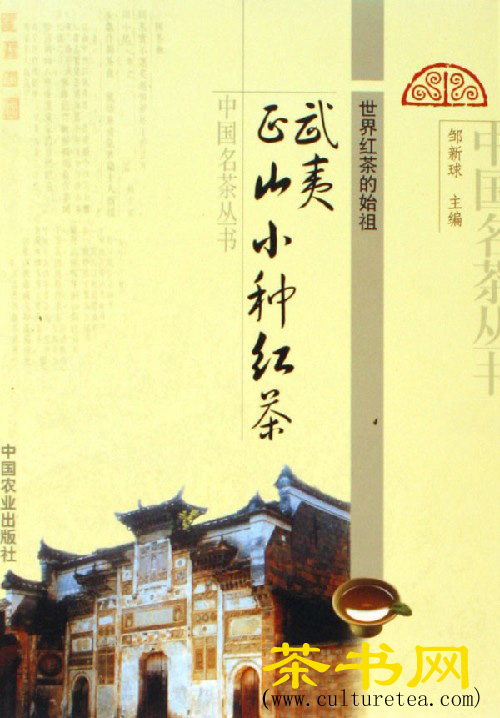 中国名茶丛书
邹新球 主编
世界红茶的始祖
武夷
正山小种红茶
中国名茶丛书
中国农业出版社
茶书网
(www.culturetea.com)